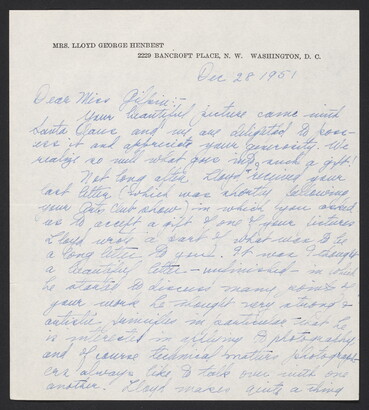 MRS. LLOYD GEORGE HENBEST
2229 BANCROFT PLACE, N. W. WASHINGTON, D. C.
Dec 28 1951
Dear Miss Gilpin:-
Your beautiful picture came with
Santa Claus, and we are delighted to poss-
ess it and appreciate your generosity. We
realize so well what goes into such a gift!
Not long after Lloyd received your
last letter (which was shortly following
your Arts Club show) in which you asked
us to accept a gift of one of your pictures
Lloyd wrote a part of what was to be
a long letter to you. It was I thought
a beautiful letter - unfinished - in which
he started to discuss many points of
your work he thought very strong &
artistic, similes in particular that he
is interested in applying to photography
and of course technical matters photograph-
ers always like to talk over with one
another! Lloyd makes quite a thing